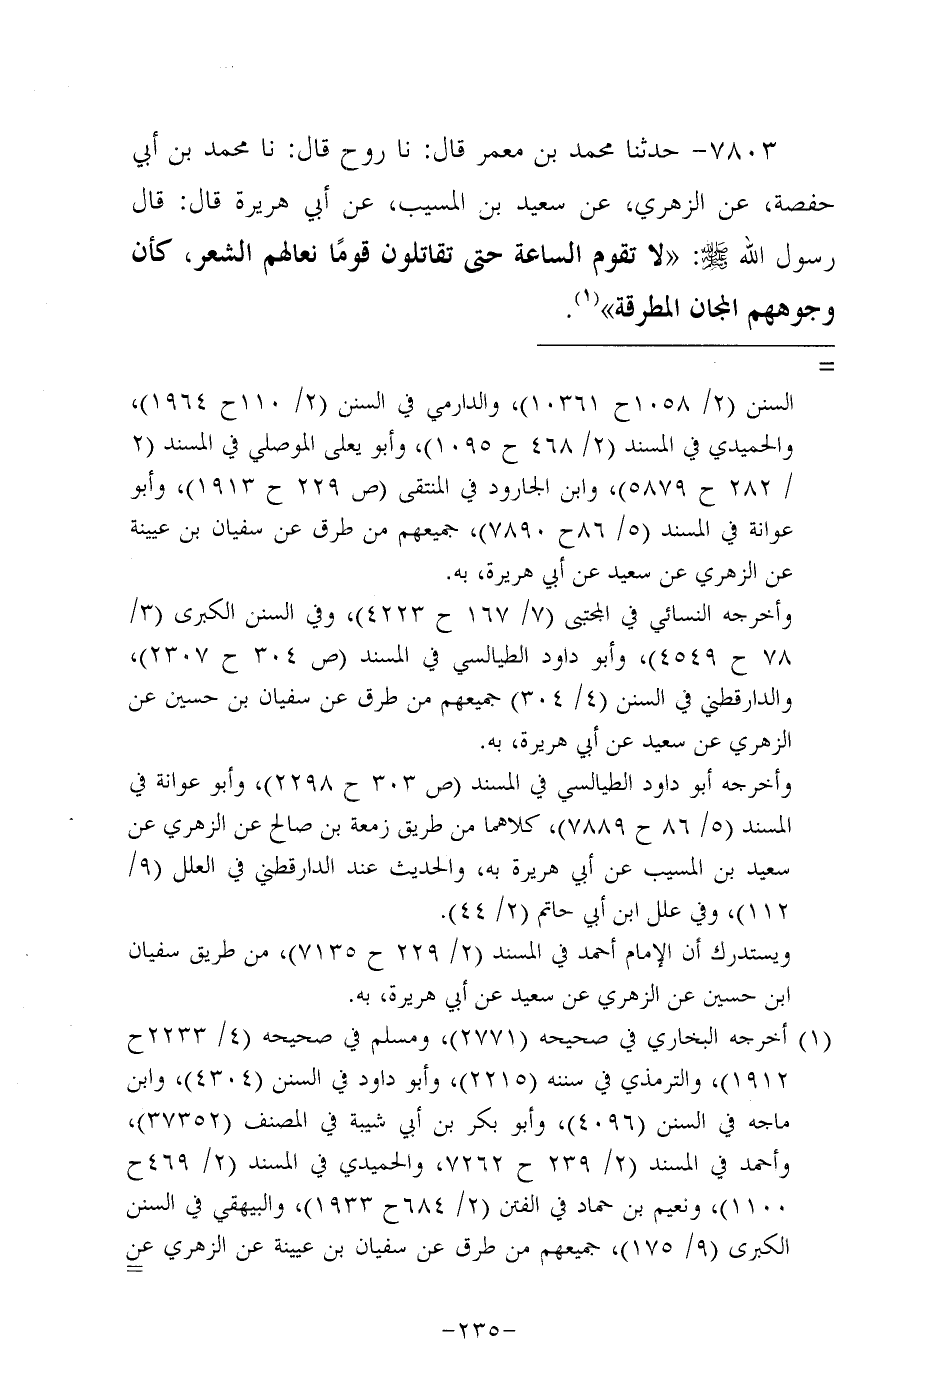 ٧٨٠٣- حدثنا محمد بن معمر قال: نا روح قال: نا محمد بن أبي
حفصة، عن الزهري، عن سعيد بن المسيب، عن أبي هريرة قال: قال
رسول الله ﷺ: «لا تقوم الساعة حتى تقاتلون قومًا نعالهم الشعر، كأن
وجوههم المجان المطرقة»(١).
=
السنن (٢/ ١٠٥٨ح ١٠٣٦١)، والدارمي في السنن (٢/ ١١٠ح ١٩٦٤)،
والحميدي في المسند (٢/ ٤٦٨ ح ١٠٩٥)، وأبو يعلى الموصلي في المسند (٢
/ ٢٨٢ ح ٥٨٧٩)، وابن الجارود في المنتقى (ص ٢٢٩ ح ١٩١٣)، وأبو
عوانة في المسند (٥/ ٨٦ح ٧٨٩٠)، جميعهم من طرق عن سفيان بن عيينة
عن الزهري عن سعيد عن أبي هريرة، به.
وأخرجه النسائي في المجتبى (٧/ ١٦٧ ح ٤٢٢٣)، وفي السنن الكبرى (٣/
٧٨ ح ٤٥٤٩)، وأبو داود الطيالسي في المسند (ص ٣٠٤ ح ٢٣٠٧)،
والدارقطني في السنن (٤/ ٣٠٤) جميعهم من طرق عن سفيان بن حسين عن
الزهري عن سعيد عن أبي هريرة، به.
وأخرجه أبو داود الطيالسي في المسند (ص ٣٠٣ ح ٢٢٩٨)، وأبو عوانة في
المسند (٥/ ٨٦ ح ٧٨٨٩)، كلاهما من طريق زمعة بن صالح عن الزهري عن
سعيد بن المسيب عن أبي هريرة به، والحديث عند الدارقطني في العلل (٩/
١١٢)، وفي علل ابن أبي حاتم (٢/ ٤٤).
ويستدرك أن الإمام أحمد في المسند (٢/ ٢٢٩ ح ٧١٣٥)، من طريق سفيان
ابن حسين عن الزهري عن سعيد عن أبي هريرة، به.
(١) أخرجه البخاري في صحيحه (٢٧٧١)، ومسلم في صحيحه (٤/ ٢٢٣٣ح
١٩١٢)، والترمذي في سننه (٢٢١٥)، وأبو داود في السنن (٤٣٠٤)، وابن
ماجه في السنن (٤٠٩٦)، وأبو بكر بن أبي شيبة في المصنف (٣٧٣٥٢)،
وأحمد في المسند (٢/ ٢٣٩ ح ٧٢٦٢، والحميدي في المسند (٢/ ٤٦٩ح
١١٠٠)، ونعيم بن حماد في الفتن (٢/ ٦٨٤ح ١٩٣٣)، والبيهقي في السنن
الكبرى (٩/ ١٧٥)، جميعهم من طرق عن سفيان بن عيينة عن الزهري عن
=
-٢٣٥-